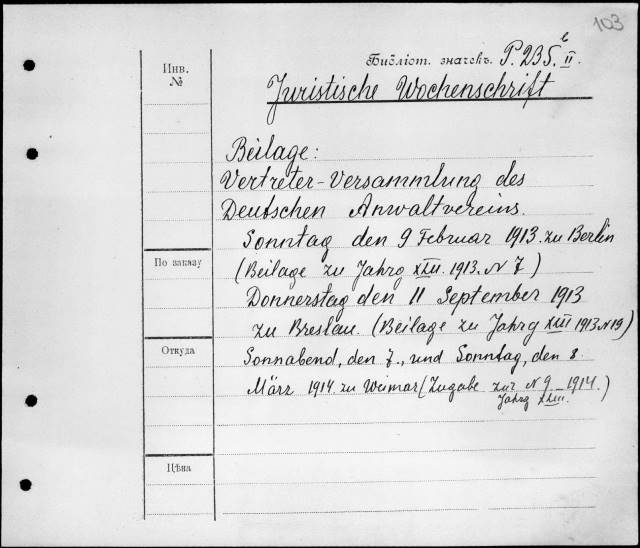 103
Библіот. значекъ. P. 235 e II.
Инв.
№
Juristische Wochenschrift
Beilage:
Vertreter-Versammlung des
Deutschen Anwaltvereins.
Sonntag den 9 Februar 1913. zu Berlin
(Beilage zu Jahrg 1913. N 7)
По заказу
Donnerstag den 11 September 1913
zu Breslau. (Beilage zu Jahrg 1913 N 19)
Откуда
Sonnabend, den 7., und Sonntag, den 8.
März 1914. zu Weimar (Zugabe zur N 9 1914.)
Jahrg
Цѣна